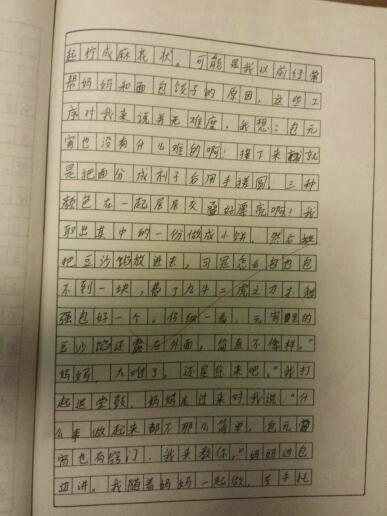 起拧成麻花状。可能是我以前经常
帮妈妈和面包饺子的原因，这些工
序对我来说并无难度，我想：包元
宵也没有什么难的啊！接下来就
是把面分成剂子后用手揉圆，三种
颜色在一起层层交叠好漂亮啊！我
取出其中的一份做成小饼，然后
把豆沙馅放进去，可是怎么包也包
不到一块，费了九牛二虎之力才勉
强包好一个。仔细一看，元宵里的
豆沙馅还露在外面，简直不像样。"
妈妈，太难了，还是你来吧。"我打
起退堂鼓，妈妈走过来对我说："什
么事做起来都不那么简单，包元
宵也有窍门，我来教你。"妈妈边包
边讲。我随着妈妈一起做，左手托